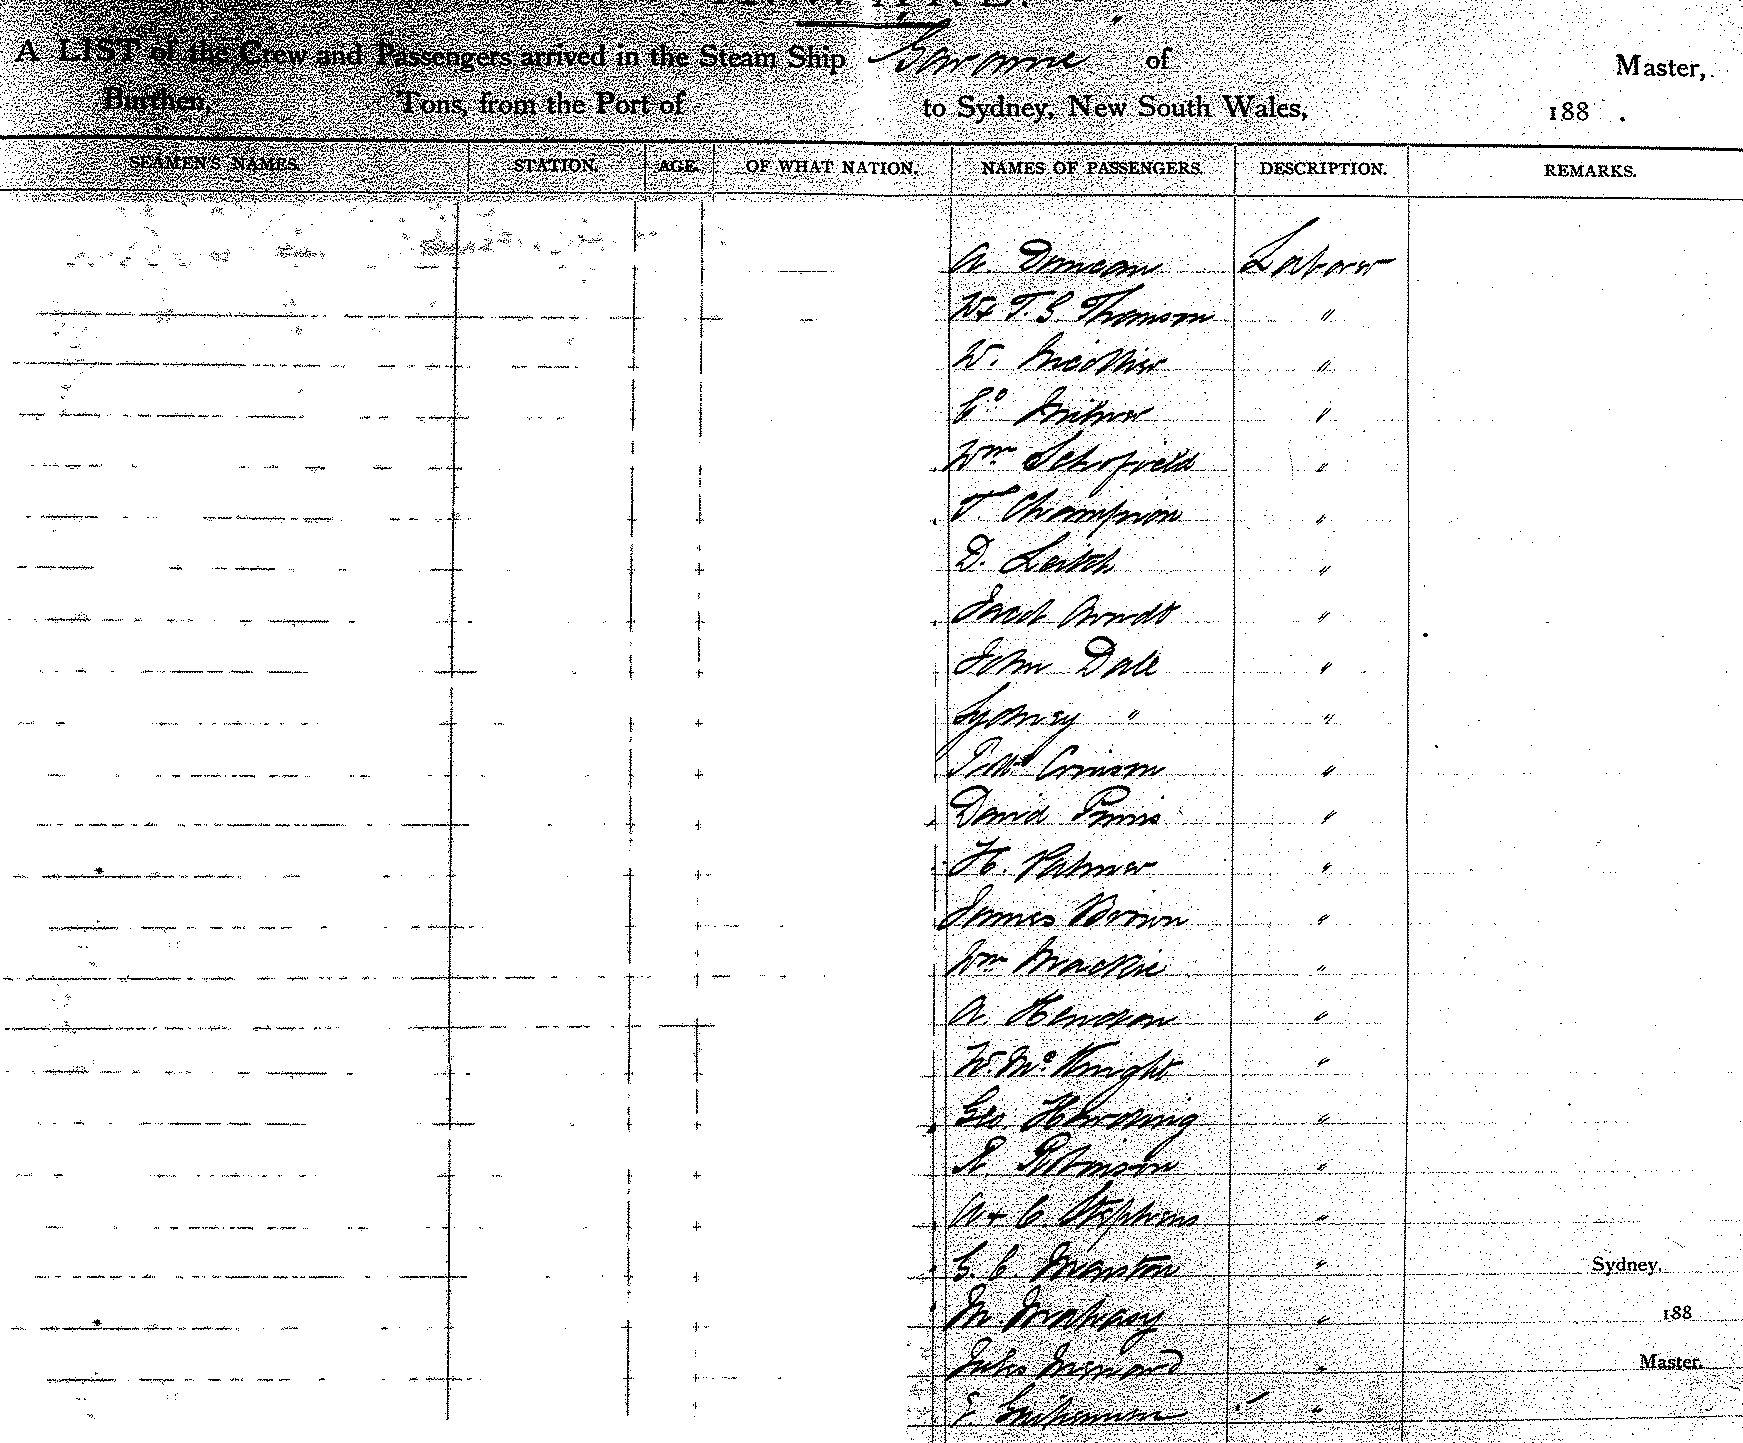 A LIST of the Crew and Passengers arrived in the Steam Ship "Garonne" of Master,
Burthen, Tons, from the Port of to Sydney, New South Wales, 188 .
SEAMEN'S NAMES. STATION. AGE. OF WHAT NATION. NAMES OF PASSENGERS. DESCRIPTION. REMARKS.
A Duncan Laborer
W & T. G. Thomson "
W. "
Co Milner "
Wm Schofield "
T Champion "
D. Leitch "
Jacob Arndt "
John Dale "
Sydney " "
Crimson "
David "
H. Palmer "
James Brown "
Wm Mackie "
A "
W McKnight "
Geo Harding "
R Robinson "
A & C Stephens "
G. C. Manston " Sydney,
M Mahasy " 188
Jules Menard " Master.
"